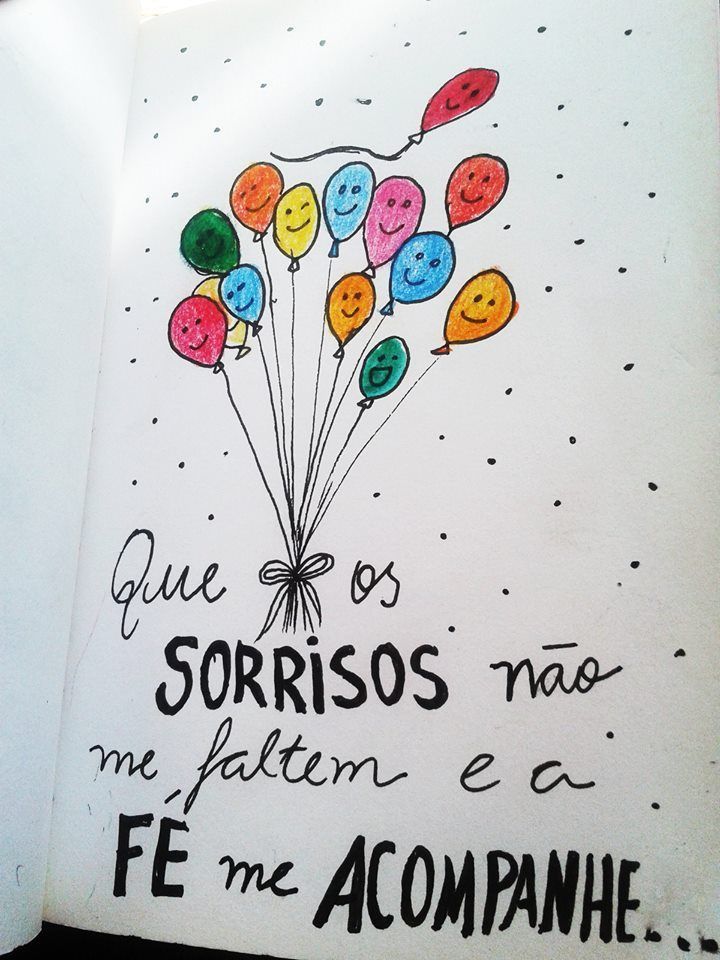 Que os
SORRISOS não
me faltem e a
FÉ me ACOMPANHE...